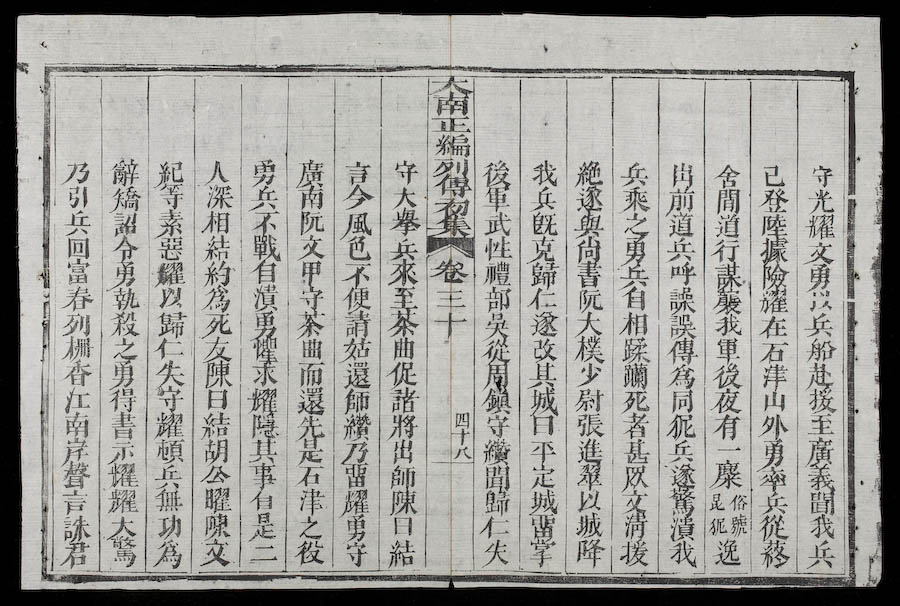 守光耀文勇以兵船赴援至廣義聞我兵
已登陸據險耀在石津山外勇率兵從移
舍間道行謀襲我軍後夜有一麋俗號昆狔逸
出前道兵呼譟誤傳為同狔兵遂驚潰我
兵乘之勇兵自相蹂躪死者甚眾文清援
絶遂與尚書阮大樸少尉張進翠以城降
我兵旣克歸仁遂改其城曰平定城畱掌
後軍武性禮部吳從周鎮守纘聞歸仁失
大南正編列傳初集 卷三十 四十八
守大舉兵來至茶曲促諸將出師陳曰結
言今風色不便請姑還師纘乃畱耀勇守
廣南阮文甲守茶曲而還先是石津之役
勇兵不戰自潰勇懼求耀隱其事自是二
人深相結約為死友陳曰結胡公曜陳文
紀等素惡耀以歸仁失守耀頓兵無功為
辭矯詔令勇執殺之勇得書示耀耀大驚
乃引兵回富春列柵香江南岸聲言誅君